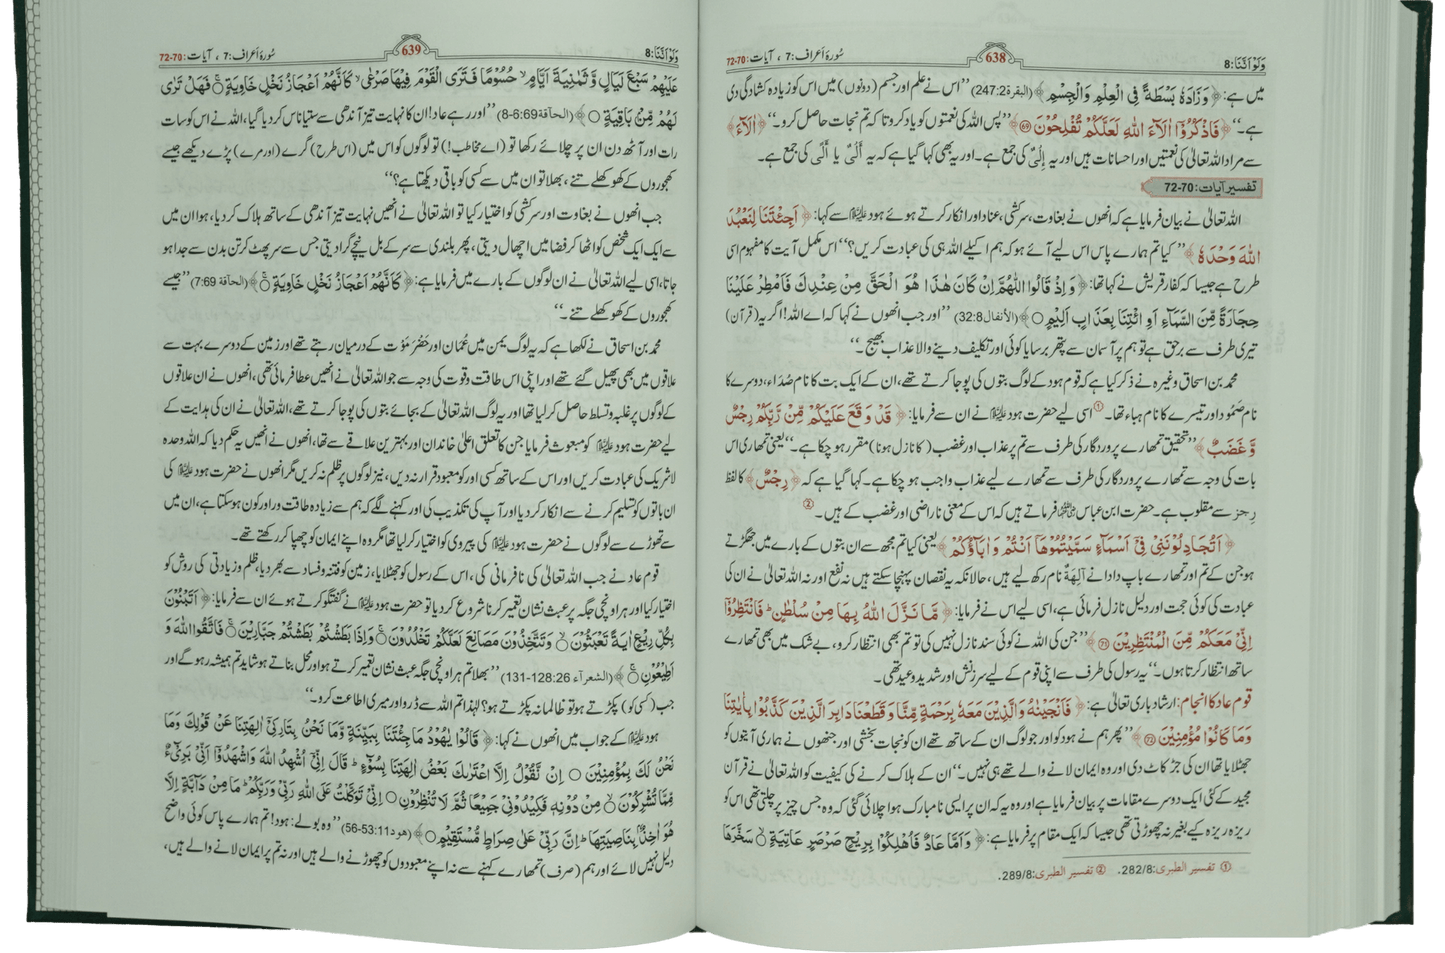 وَلَوْ اَنَّنَا: 8
638
سُورۂ اَعراف: 7 ، آیات: 70-72
میں ہے: ﴿ وَزَادَهٗ بَسْطَةً فِي الْعِلْمِ وَالْجِسْمِ ﴾ (البقرة 247:2) ’’اس نے علم اور جسم (دونوں) میں اس کو زیادہ کشادگی دی
ہے۔‘‘ ﴿ فَاذْكُرُوْۤا اٰلَآءَ اللّٰهِ لَعَلَّكُمْ تُفْلِحُوْنَ 69 ﴾ ’’پس اللہ کی نعمتوں کو یاد کرو تاکہ تم نجات حاصل کرو۔‘‘ ﴿ اٰلَآءَ ﴾
سے مراد اللہ تعالیٰ کی نعمتیں اور احسانات ہیں اور یہ اِلْیٌ کی جمع ہے۔ اور یہ بھی کہا گیا ہے کہ یہ اَلْیٌ یا اَلًی کی جمع ہے۔
تفسیر آیات: 70-72
اللہ تعالیٰ نے بیان فرمایا ہے کہ انھوں نے بغاوت، سرکشی، عناد اور انکار کرتے ہوئے ہود علیہ السلام سے کہا: ﴿ اَجِئْتَنَا لِنَعْبُدَ
اللّٰهَ وَحْدَهٗ ﴾ ’’کیا تم ہمارے پاس اس لیے آئے ہو کہ ہم اکیلے اللہ ہی کی عبادت کریں؟‘‘ اس مکمل آیت کا مفہوم اسی
طرح ہے جیسا کہ کفار قریش نے کہا تھا: ﴿ وَاِذْ قَالُوا اللّٰهُمَّ اِنْ كَانَ هٰذَا هُوَ الْحَقَّ مِنْ عِنْدِكَ فَاَمْطِرْ عَلَيْنَا
حِجَارَةً مِّنَ السَّمَآءِ اَوِ ائْتِنَا بِعَذَابٍ اَلِيْمٍ ﴾ (الأنفال 32:8) ’’اور جب انھوں نے کہا کہ اے اللہ! اگر یہ (قرآن)
تیری طرف سے برحق ہے تو ہم پر آسمان سے پتھر برسا یا کوئی اور تکلیف دینے والا عذاب بھیج۔‘‘
محمد بن اسحاق وغیرہ نے ذکر کیا ہے کہ قوم ہود کے لوگ بتوں کی پوجا کرتے تھے، ان کے ایک بت کا نام صُدَاء، دوسرے کا
نام صَمُود اور تیسرے کا نام ہباء تھا۔ ① اسی لیے حضرت ہود علیہ السلام نے ان سے فرمایا: ﴿ قَدْ وَقَعَ عَلَيْكُمْ مِّنْ رَّبِّكُمْ رِجْسٌ
وَّغَضَبٌ ﴾ ’’تحقیق تمھارے پروردگار کی طرف سے تم پر عذاب اور غضب (کا نازل ہونا) مقرر ہو چکا ہے۔‘‘ یعنی تمھاری اس
بات کی وجہ سے تمھارے پروردگار کی طرف سے تمھارے لیے عذاب واجب ہو چکا ہے۔ کہا گیا ہے کہ ﴿ رِجْسٌ ﴾ کا لفظ
رِجز سے مقلوب ہے۔ حضرت ابن عباس رضی اللہ عنہما فرماتے ہیں کہ اس کے معنی ناراضی اور غضب کے ہیں۔ ②
﴿ اَتُجَادِلُوْنَنِيْ فِيْۤ اَسْمَآءٍ سَمَّيْتُمُوْهَاۤ اَنْتُمْ وَاٰبَآؤُكُمْ ﴾ یعنی کیا تم مجھ سے ان بتوں کے بارے میں جھگڑتے
ہو جن کے تم اور تمھارے باپ دادا نے آلِهَةٌ نام رکھ لیے ہیں، حالانکہ یہ نقصان پہنچا سکتے ہیں نہ نفع اور نہ اللہ تعالیٰ نے ان کی
عبادت کی کوئی حجت اور دلیل نازل فرمائی ہے، اسی لیے اس نے فرمایا: ﴿ مَّا نَزَّلَ اللّٰهُ بِهَا مِنْ سُلْطٰنٍ ؕ فَانْتَظِرُوْۤا
اِنِّيْ مَعَكُمْ مِّنَ الْمُنْتَظِرِيْنَ 71 ﴾ ’’جن کی اللہ نے کوئی سند نازل نہیں کی تو تم بھی انتظار کرو، بے شک میں بھی تمھارے
ساتھ انتظار کرتا ہوں۔‘‘ یہ رسول کی طرف سے اپنی قوم کے لیے سرزنش اور شدید وعید تھی۔
قوم عاد کا انجام: ارشاد باری تعالیٰ ہے: ﴿ فَاَنْجَيْنٰهُ وَالَّذِيْنَ مَعَهٗ بِرَحْمَةٍ مِّنَّا وَقَطَعْنَا دَابِرَ الَّذِيْنَ كَذَّبُوْا بِاٰيٰتِنَا
وَمَا كَانُوْا مُؤْمِنِيْنَ 72 ﴾ ’’پھر ہم نے ہود کو اور جو لوگ ان کے ساتھ تھے ان کو نجات بخشی اور جنھوں نے ہماری آیتوں کو
جھٹلایا تھا ان کی جڑ کاٹ دی اور وہ ایمان لانے والے تھے ہی نہیں۔‘‘ ان کے ہلاک کرنے کی کیفیت کو اللہ تعالیٰ نے قرآن
مجید کے کئی ایک دوسرے مقامات پر بیان فرمایا ہے اور وہ یہ کہ ان پر ایسی نامبارک ہوا چلائی گئی کہ وہ جس چیز پر چلتی تھی اس کو
ریزہ ریزہ کیے بغیر نہ چھوڑتی تھی جیسا کہ ایک مقام پر فرمایا ہے: ﴿ وَاَمَّا عَادٌ فَاُهْلِكُوْا بِرِيْحٍ صَرْصَرٍ عَاتِيَةٍ ۙ سَخَّرَهَا
① تفسير الطبري: 282/8. ② تفسير الطبري: 289/8.
وَلَوْ اَنَّنَا: 8
639
سُورۂ اَعراف: 7 ، آیات: 70-72
عَلَيْهِمْ سَبْعَ لَيَالٍ وَّثَمٰنِيَةَ اَيَّامٍ ۙ حُسُوْمًا فَتَرَى الْقَوْمَ فِيْهَا صَرْعٰى ۙ كَاَنَّهُمْ اَعْجَازُ نَخْلٍ خَاوِيَةٍ ۚ فَهَلْ تَرٰى
لَهُمْ مِّنْۢ بَاقِيَةٍ ﴾ (الحاقة 69:6-8) ’’اور رہے عاد! ان کا نہایت تیز آندھی سے ستیاناس کر دیا گیا، اللہ نے اس کو سات
رات اور آٹھ دن ان پر چلائے رکھا تو (اے مخاطب!) تو لوگوں کو اس میں (اس طرح) گرے (اور مرے) پڑے دیکھے جیسے
کھجوروں کے کھوکھلے تنے، بھلا تو ان میں سے کسی کو باقی دیکھتا ہے؟‘‘
جب انھوں نے بغاوت اور سرکشی کو اختیار کیا تو اللہ تعالیٰ نے انھیں نہایت تیز آندھی کے ساتھ ہلاک کر دیا، ہوا ان میں
سے ایک ایک شخص کو اٹھا کر فضا میں اچھال دیتی، پھر بلندی سے سر کے بل نیچے گرا دیتی جس سے سر پھٹ کر تن بدن سے جدا ہو
جاتا، اسی لیے اللہ تعالیٰ نے ان لوگوں کے بارے میں فرمایا ہے: ﴿ كَاَنَّهُمْ اَعْجَازُ نَخْلٍ خَاوِيَةٍ ﴾ (الحاقة 7:69) ’’جیسے
کھجوروں کے کھوکھلے تنے۔‘‘
محمد بن اسحاق نے لکھا ہے کہ یہ لوگ یمن میں عُمان اور حَضْرَ مَوْت کے درمیان رہتے تھے اور زمین کے دوسرے بہت سے
علاقوں میں بھی پھیل گئے تھے اور اپنی اس طاقت و قوت کی وجہ سے جو اللہ تعالیٰ نے انھیں عطا فرمائی تھی، انھوں نے ان علاقوں
کے لوگوں پر غلبہ و تسلط حاصل کر لیا تھا اور یہ لوگ اللہ تعالیٰ کے بجائے بتوں کی پوجا کرتے تھے، اللہ تعالیٰ نے ان کی ہدایت کے
لیے حضرت ہود علیہ السلام کو مبعوث فرمایا جن کا تعلق اعلیٰ خاندان اور بہترین علاقے سے تھا، انھوں نے انھیں یہ حکم دیا کہ اللہ وحدہ
لا شریک کی عبادت کریں اور اس کے ساتھ کسی اور کو معبود قرار نہ دیں، نیز لوگوں پر ظلم نہ کریں مگر انھوں نے حضرت ہود علیہ السلام کی
ان باتوں کو تسلیم کرنے سے انکار کر دیا اور آپ کی تکذیب کی اور کہنے لگے کہ ہم سے زیادہ طاقت ور اور کون ہو سکتا ہے، ان میں
سے تھوڑے سے لوگوں نے حضرت ہود علیہ السلام کی پیروی کو اختیار کر لیا تھا مگر وہ اپنے ایمان کو چھپا کر رکھتے تھے۔
قوم عاد نے جب اللہ تعالیٰ کی نافرمانی کی، اس کے رسول کو جھٹلایا، زمین کو فتنہ و فساد سے بھر دیا، ظلم و زیادتی کی روش کو
اختیار کیا اور ہر اونچی جگہ پر عبث نشان تعمیر کرنا شروع کر دیا تو حضرت ہود علیہ السلام نے گفتگو کرتے ہوئے ان سے فرمایا: ﴿ اَتَبْنُوْنَ
بِكُلِّ رِيْعٍ اٰيَةً تَعْبَثُوْنَ ۙ وَتَتَّخِذُوْنَ مَصَانِعَ لَعَلَّكُمْ تَخْلُدُوْنَ ۚ وَاِذَا بَطَشْتُمْ بَطَشْتُمْ جَبَّارِيْنَ ۚ فَاتَّقُوا اللّٰهَ وَ
اَطِيْعُوْنِ ﴾ (الشعرآء 128:26-131) ’’بھلا تم ہر اونچی جگہ عبث نشان تعمیر کرتے ہو اور محل بناتے ہو شاید تم ہمیشہ رہو گے اور
جب (کسی کو) پکڑتے ہو تو ظالمانہ پکڑتے ہو؟ لہٰذا تم اللہ سے ڈرو اور میری اطاعت کرو۔‘‘
ہود علیہ السلام کے جواب میں انھوں نے کہا: ﴿ قَالُوْا يٰهُوْدُ مَا جِئْتَنَا بِبَيِّنَةٍ وَّمَا نَحْنُ بِتَارِكِيْۤ اٰلِهَتِنَا عَنْ قَوْلِكَ وَمَا
نَحْنُ لَكَ بِمُؤْمِنِيْنَ ۝ اِنْ نَّقُوْلُ اِلَّا اعْتَرٰىكَ بَعْضُ اٰلِهَتِنَا بِسُوْٓءٍ ؕ قَالَ اِنِّيْۤ اُشْهِدُ اللّٰهَ وَاشْهَدُوْۤا اَنِّيْ بَرِيْٓءٌ
مِّمَّا تُشْرِكُوْنَ ۙ مِنْ دُوْنِهٖ فَكِيْدُوْنِيْ جَمِيْعًا ثُمَّ لَا تُنْظِرُوْنِ ۝ اِنِّيْ تَوَكَّلْتُ عَلَى اللّٰهِ رَبِّيْ وَرَبِّكُمْ ؕ مَا مِنْ دَآبَّةٍ اِلَّا
هُوَ اٰخِذٌۢ بِنَاصِيَتِهَا ؕ اِنَّ رَبِّيْ عَلٰى صِرَاطٍ مُّسْتَقِيْمٍ ﴾ (هود 53:11-56) ’’وہ بولے: ہود! تم ہمارے پاس کوئی واضح
دلیل نہیں لائے اور ہم (صرف) تمھارے کہنے سے نہ اپنے معبودوں کو چھوڑنے والے ہیں اور نہ تم پر ایمان لانے والے ہیں،